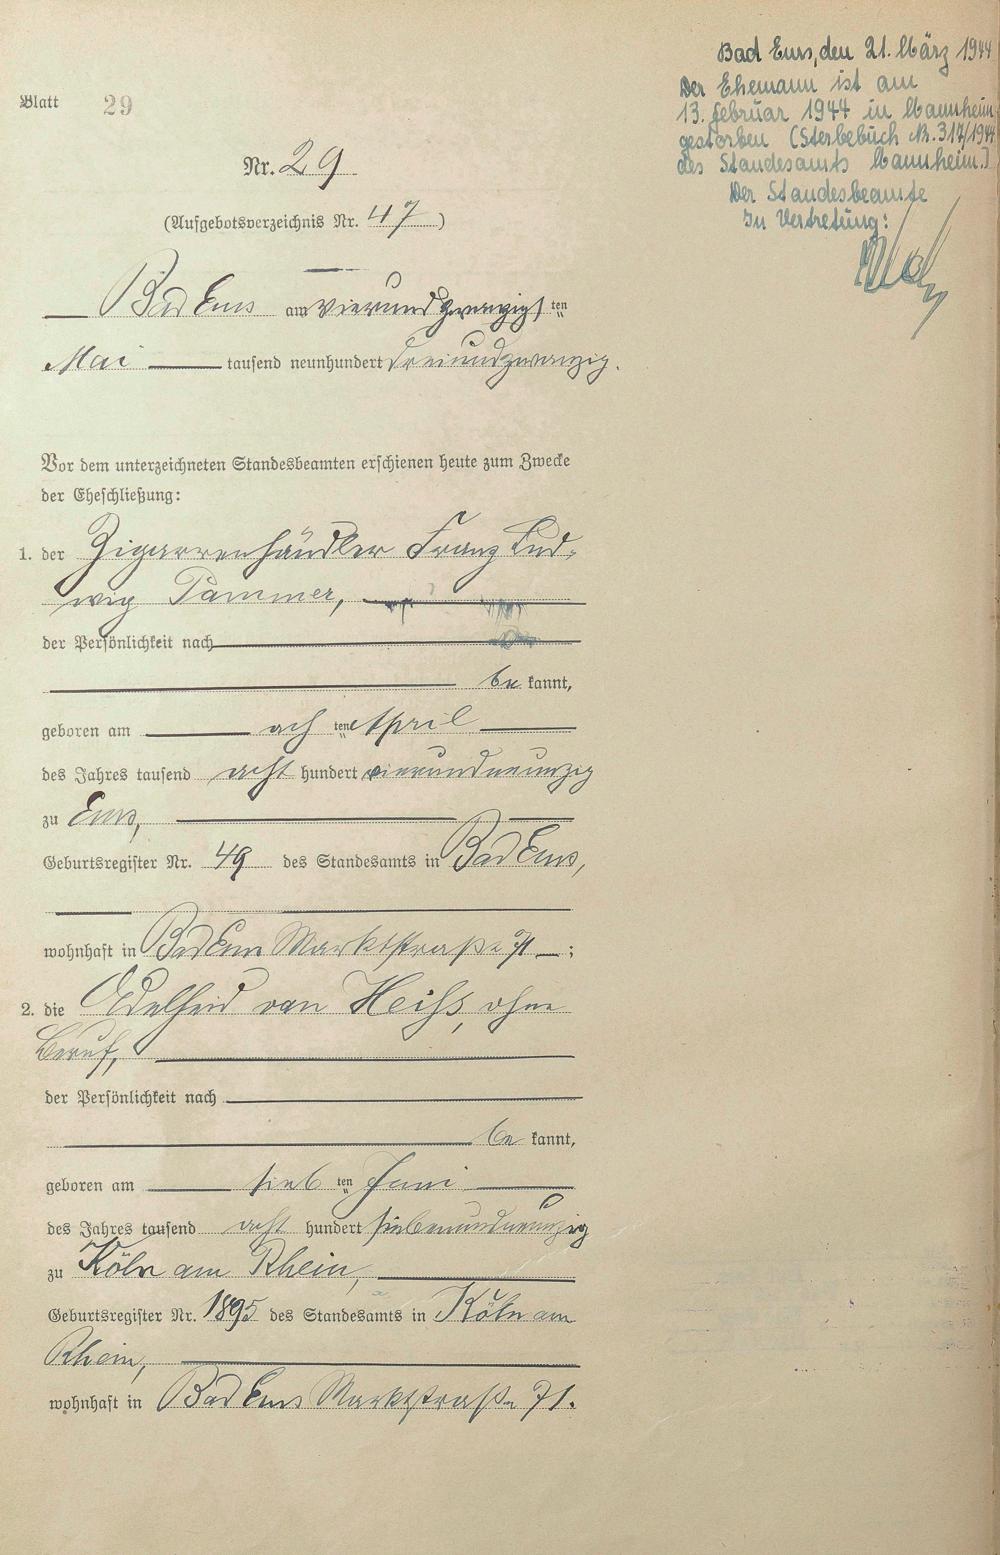 Bad Ems, den 21. März 1944
Der Ehemann ist am
13. Februar 1944 in Mannheim
gestorben (Sterbebuch Nr. 317/1944
des Standesamts Mannheim.)
Der Standesbeamte
In Vertretung:
Blatt 29
Nr. 29
(Aufgebotsverzeichnis Nr. 47)
Bad Ems am vierundzwanzigsten
Mai tausend neunhundert dreiundzwanzig.
Vor dem unterzeichneten Standesbeamten erschienen heute zum Zwecke
der Eheschließung:
1. der Zigarrenhändler Franz Lud-
wig Pammer,
der Persönlichkeit nach
be kannt,
geboren am ach ten April
des Jahres tausend acht hundert vierundneunzig
zu Ems,
Geburtsregister Nr. 49 des Standesamts in Bad Ems,
wohnhaft in Bad Ems Marktstraße 71;
2. die Adelheid van Heiss, ohne
Beruf,
der Persönlichkeit nach
be kannt,
geboren am sieb ten Juni
des Jahres tausend acht hundert siebenundneunzig
zu Köln am Rhein,
Geburtsregister Nr. 1895 des Standesamts in Köln am
Rhein,
wohnhaft in Bad Ems Marktstraße 71.